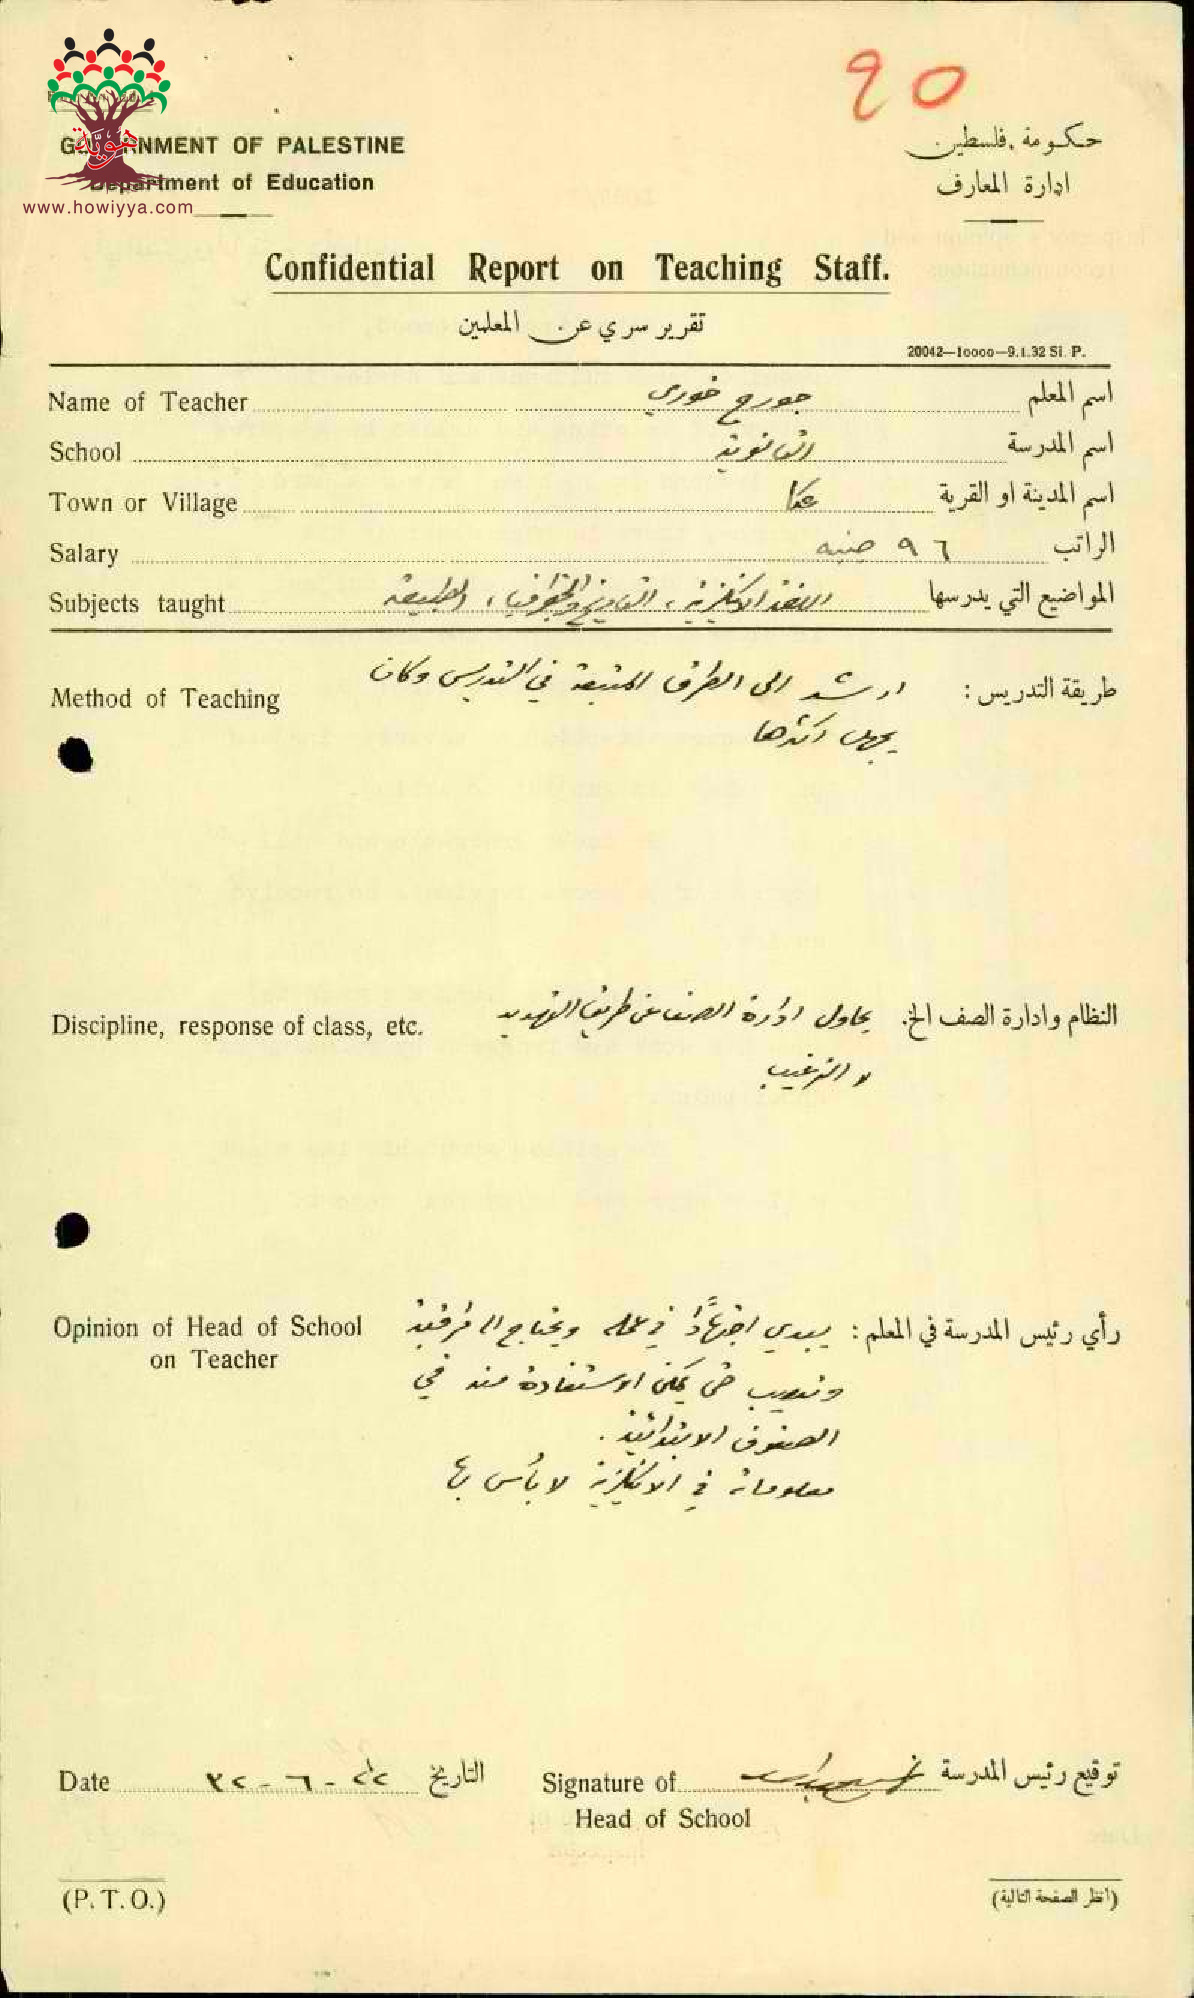 90
هويّة
www.howiyya.com
GOVERNMENT OF PALESTINE
Department of Education
حكومة فلسطين
ادارة المعارف
Confidential Report on Teaching Staff.
تقرير سري عن المعلمين
20042—10000—9.1.32 Sl. P.
Name of Teacher جورج خوري اسم المعلم
School الثانوية اسم المدرسة
Town or Village عكا اسم المدينة او القرية
Salary ٩٦ جنيه الراتب
Subjects taught اللغة الانكليزية، التاريخ والجغرافيا، الطبيعة المواضيع التي يدرسها
Method of Teaching
طريقة التدريس : ارشد الى الطرق المتبعة في التدريس وكان
يجهل اكثرها
Discipline, response of class, etc.
النظام وادارة الصف الخ. يحاول ادارة الصف عن طريق التهديد
لا الترغيب
Opinion of Head of School
on Teacher
رأي رئيس المدرسة في المعلم : يبدي اجتهادًا في عمله ويحتاج الى
وتدريب حتى يمكن الاستفادة منه في
الصفوف الابتدائية .
معلوماته في الانكليزية لا بأس بها
Date ٢٢ - ٦ - ٣٢ التاريخ
Signature of توقيع رئيس المدرسة
Head of School
(P.T.O.)
(انظر الصفحة التالية)